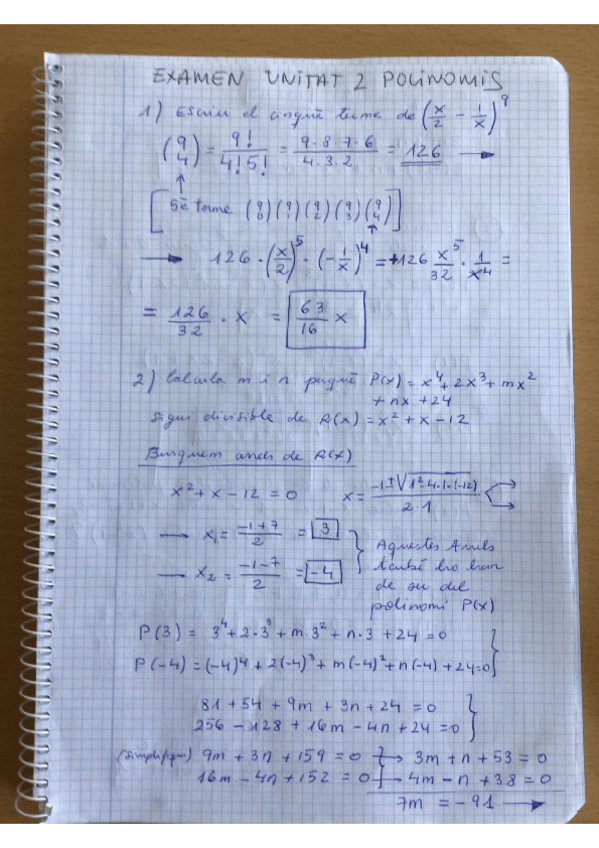 EXAMEN UNITAT 2 POLINOMIS
1) Escriu el cinquè terme de (x/2 - 1/x)^9
(9 4) = 9!/4!5! = 9·8·7·6/4·3·2 = 126 →
↑
[5è terme (9 0)(9 1)(9 2)(9 3)(9 4)]
→ 126 · (x/2)^5 · (-1/x)^4 = +126 x^5/32 · 1/x^4 =
= 126/32 · x = 63/16 x
2) Calcula m i n perquè P(x) = x^4 + 2x^3 + mx^2
+ nx + 24
sigui divisible de A(x) = x^2 + x - 12
Busquem arrels de A(x)
x^2 + x - 12 = 0 x = -1 ± √1^2-4·1·(-12) / 2·1
→ x1 = -1+7/2 = 3
→ x2 = -1-7/2 = -4
Aquestes arrels
també ho han
de ser del
polinomi P(x)
P(3) = 3^4 + 2·3^3 + m·3^2 + n·3 + 24 = 0
P(-4) = (-4)^4 + 2(-4)^3 + m(-4)^2 + n(-4) + 24 = 0
81 + 54 + 9m + 3n + 24 = 0
256 - 128 + 16m - 4n + 24 = 0
(simplifiquem) 9m + 3n + 159 = 0 → 3m + n + 53 = 0
16m - 4n + 152 = 0 → 4m - n + 38 = 0
7m = -91 →